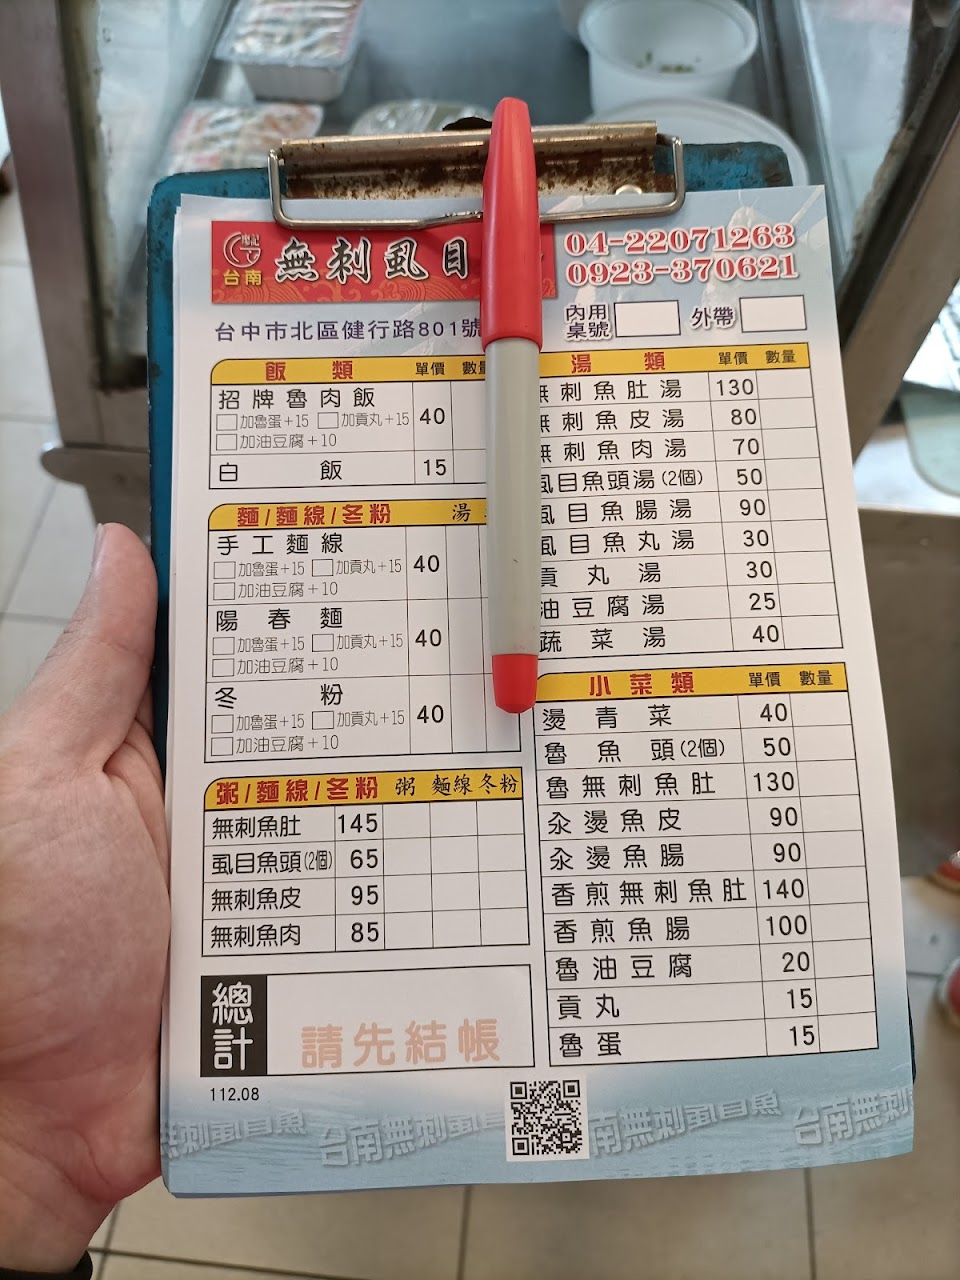 廖記
台南
無刺虱目
04-22071263
0923-370621
台中市北區健行路801號
內用
桌號
外帶
飯類 單價 數量
招牌魯肉飯 40
加魯蛋+15 加貢丸+15
加油豆腐+10
白飯 15
麵/麵線/冬粉 湯
手工麵線 40
加魯蛋+15 加貢丸+15
加油豆腐+10
陽春麵 40
加魯蛋+15 加貢丸+15
加油豆腐+10
冬粉 40
加魯蛋+15 加貢丸+15
加油豆腐+10
粥/麵線/冬粉 粥 麵線 冬粉
無刺魚肚 145
虱目魚頭(2個) 65
無刺魚皮 95
無刺魚肉 85
總計
請先結帳
112.08
湯類 單價 數量
無刺魚肚湯 130
無刺魚皮湯 80
無刺魚肉湯 70
虱目魚頭湯(2個) 50
虱目魚腸湯 90
虱目魚丸湯 30
貢丸湯 30
油豆腐湯 25
蔬菜湯 40
小菜類 單價 數量
燙青菜 40
魯魚頭(2個) 50
魯無刺魚肚 130
汆燙魚皮 90
汆燙魚腸 90
香煎無刺魚肚 140
香煎魚腸 100
魯油豆腐 20
貢丸 15
魯蛋 15
無刺虱目魚 台南無刺虱目魚 南無刺虱目魚 台南無刺